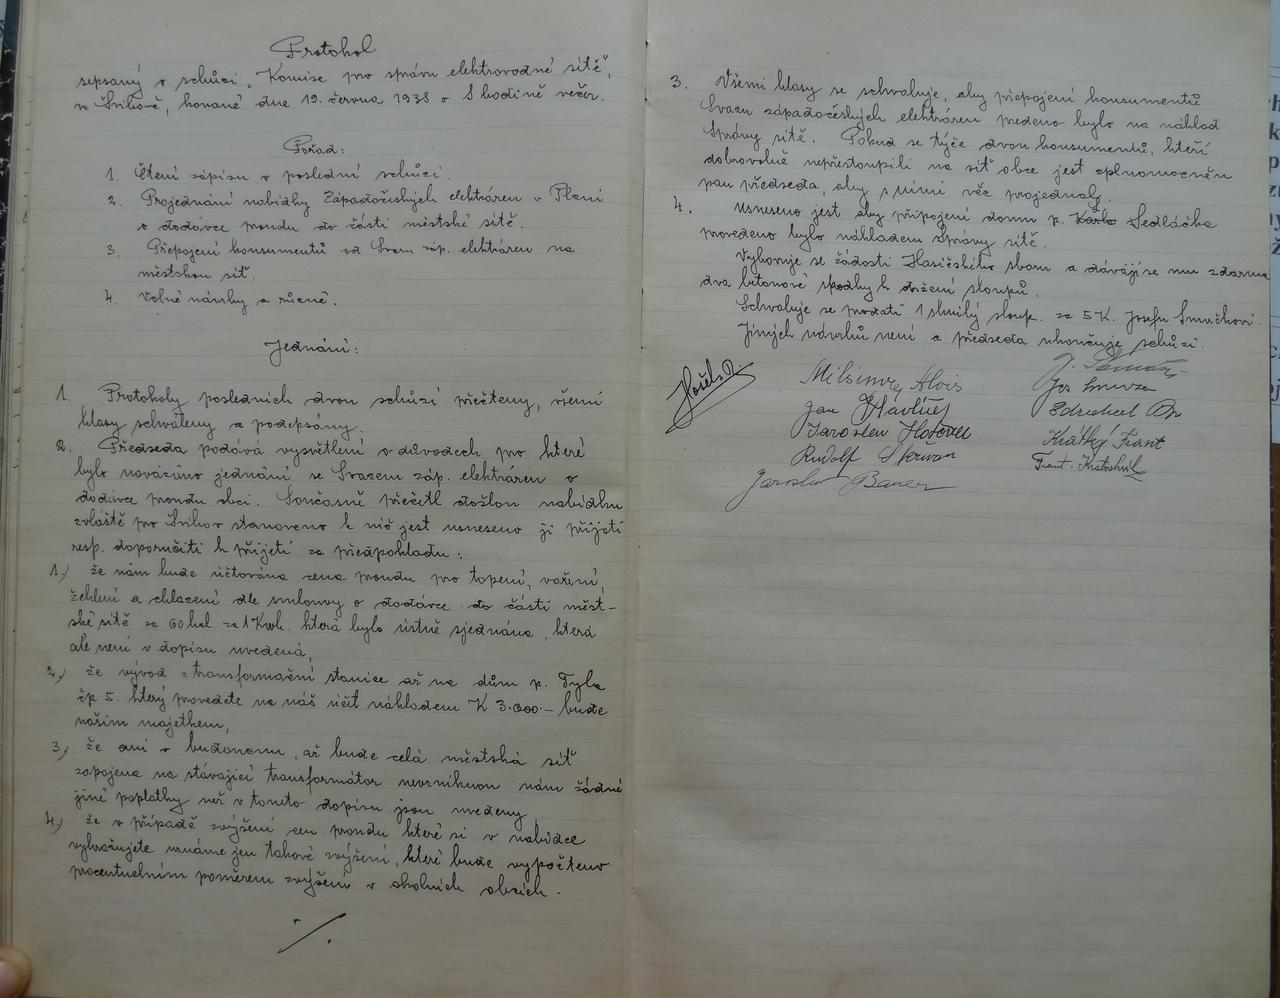 Protokol
sepsaný o schůzi „Komise pro správu elektrovodné sítě",
ve Švihově, konané dne 12. června 1938 o 8 hodině večer.
Pořad:
1. Čtení zápisu o poslední schůzi.
2. Projednání nabídky Západočeských elektráren v Plzni
o dodávce proudu do části městské sítě.
3. Přepojení konsumentů od Svazu záp. elektráren na
městskou síť.
4. Volné návrhy a různé.
Jednání:
1. Protokoly posledních dvou schůzí přečteny, všemi
hlasy schváleny a podepsány.
2. Předseda podává vysvětlení o důvodech pro které
bylo navázáno jednání se Svazem záp. elektráren o
dodávce proudu obci. Současně přečetl došlou nabídku
zvláště pro Švihov stanoveno k níž jest usneseno ji přijeti
resp. doporučiti k přijetí za předpokladu:
1.) že nám bude účtována cena proudu pro topení, vaření,
žehlení a chlazení dle smlouvy o dodávce do části měst-
ské sítě za 60 hal. za 1 Kwh. která byla ústně sjednána, která
ale není v dopisu uvedená,
2.) že vývod z transformační stanice až na dům p. Tyla
čp 5. který provedete na náš účet nákladem K 3.000.– bude
našim majetkem,
3.) že ani v budoucnu, až bude celá městská síť
zapojena na stávající transformátor nevzniknou nám žádné
jiné poplatky než v tomto dopisu jsou uvedeny,
4.) že v případě zvýšení cen proudu které si v nabídce
vyhražujete uznáme jen takové zvýšení, které bude vypočteno
procentuelním poměrem zvýšení v okolních obcích.
./.
3. Všemi hlasy se schvaluje, aby přepojení konsumentů
Svazu západočeských elektráren vedeno bylo na náklad
Správy sítě. Pokud se týče dvou konsumentů, kteří
dobrovolně nepřestoupili na síť obce jest zplnomocněn
pan předseda, aby s nimi věc projednal.
4. Usneseno jest aby připojení domu p. Karla Sedláčka
provedeno bylo nákladem Správy sítě.
Vyhovuje se žádosti Hasičského sboru a dávají se mu zdarma
dva betonové spodky k držení sloupů.
Schvaluje se prodati 1 shnilý sloup. za 5 K. Josefu Smrčkovi.
Jiných návrhů není a předseda ukončuje schůzi.
Alois
Jan Havlíček
Jaroslav
Rudolf
Krátký Frant
Frant. Kratochvíl
Jaroslav Bauer